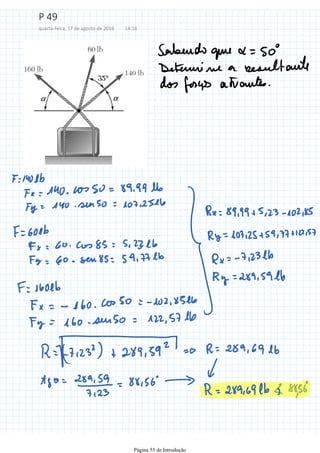 P 49
quarta-feira, 17 de agosto de 2016 14:16
Sabendo que α = 50°
Determine a resultante
das forças atuantes.
60 lb
160 lb
140 lb
35°
α α
F: 140lb
Fx = 140. cos 50 = 89,99 lb
Fy = 140 . sen 50 = 107,25lb
F = 60lb
Fx = 60. cos 85 = 5,23 lb
Fy = 60 . sen 85 = 59,77 lb
F = 160lb
Fx = - 160. cos 50 = -102,85lb
Fy = 160 . sen 50 = 122,57 lb
Rx = 89,99 + 5,23 - 102,85
Ry = 107,25 + 59,77 + 122,57
Rx = -7,23 lb
Ry = 289,59 lb
R = √(-7,23²) + 289,59² => R = 289,69 lb
tg θ = 289,59 / 7,23 = 88,56° → R = 289,69 lb ∡ 88,56°
Página 55 de Introdução